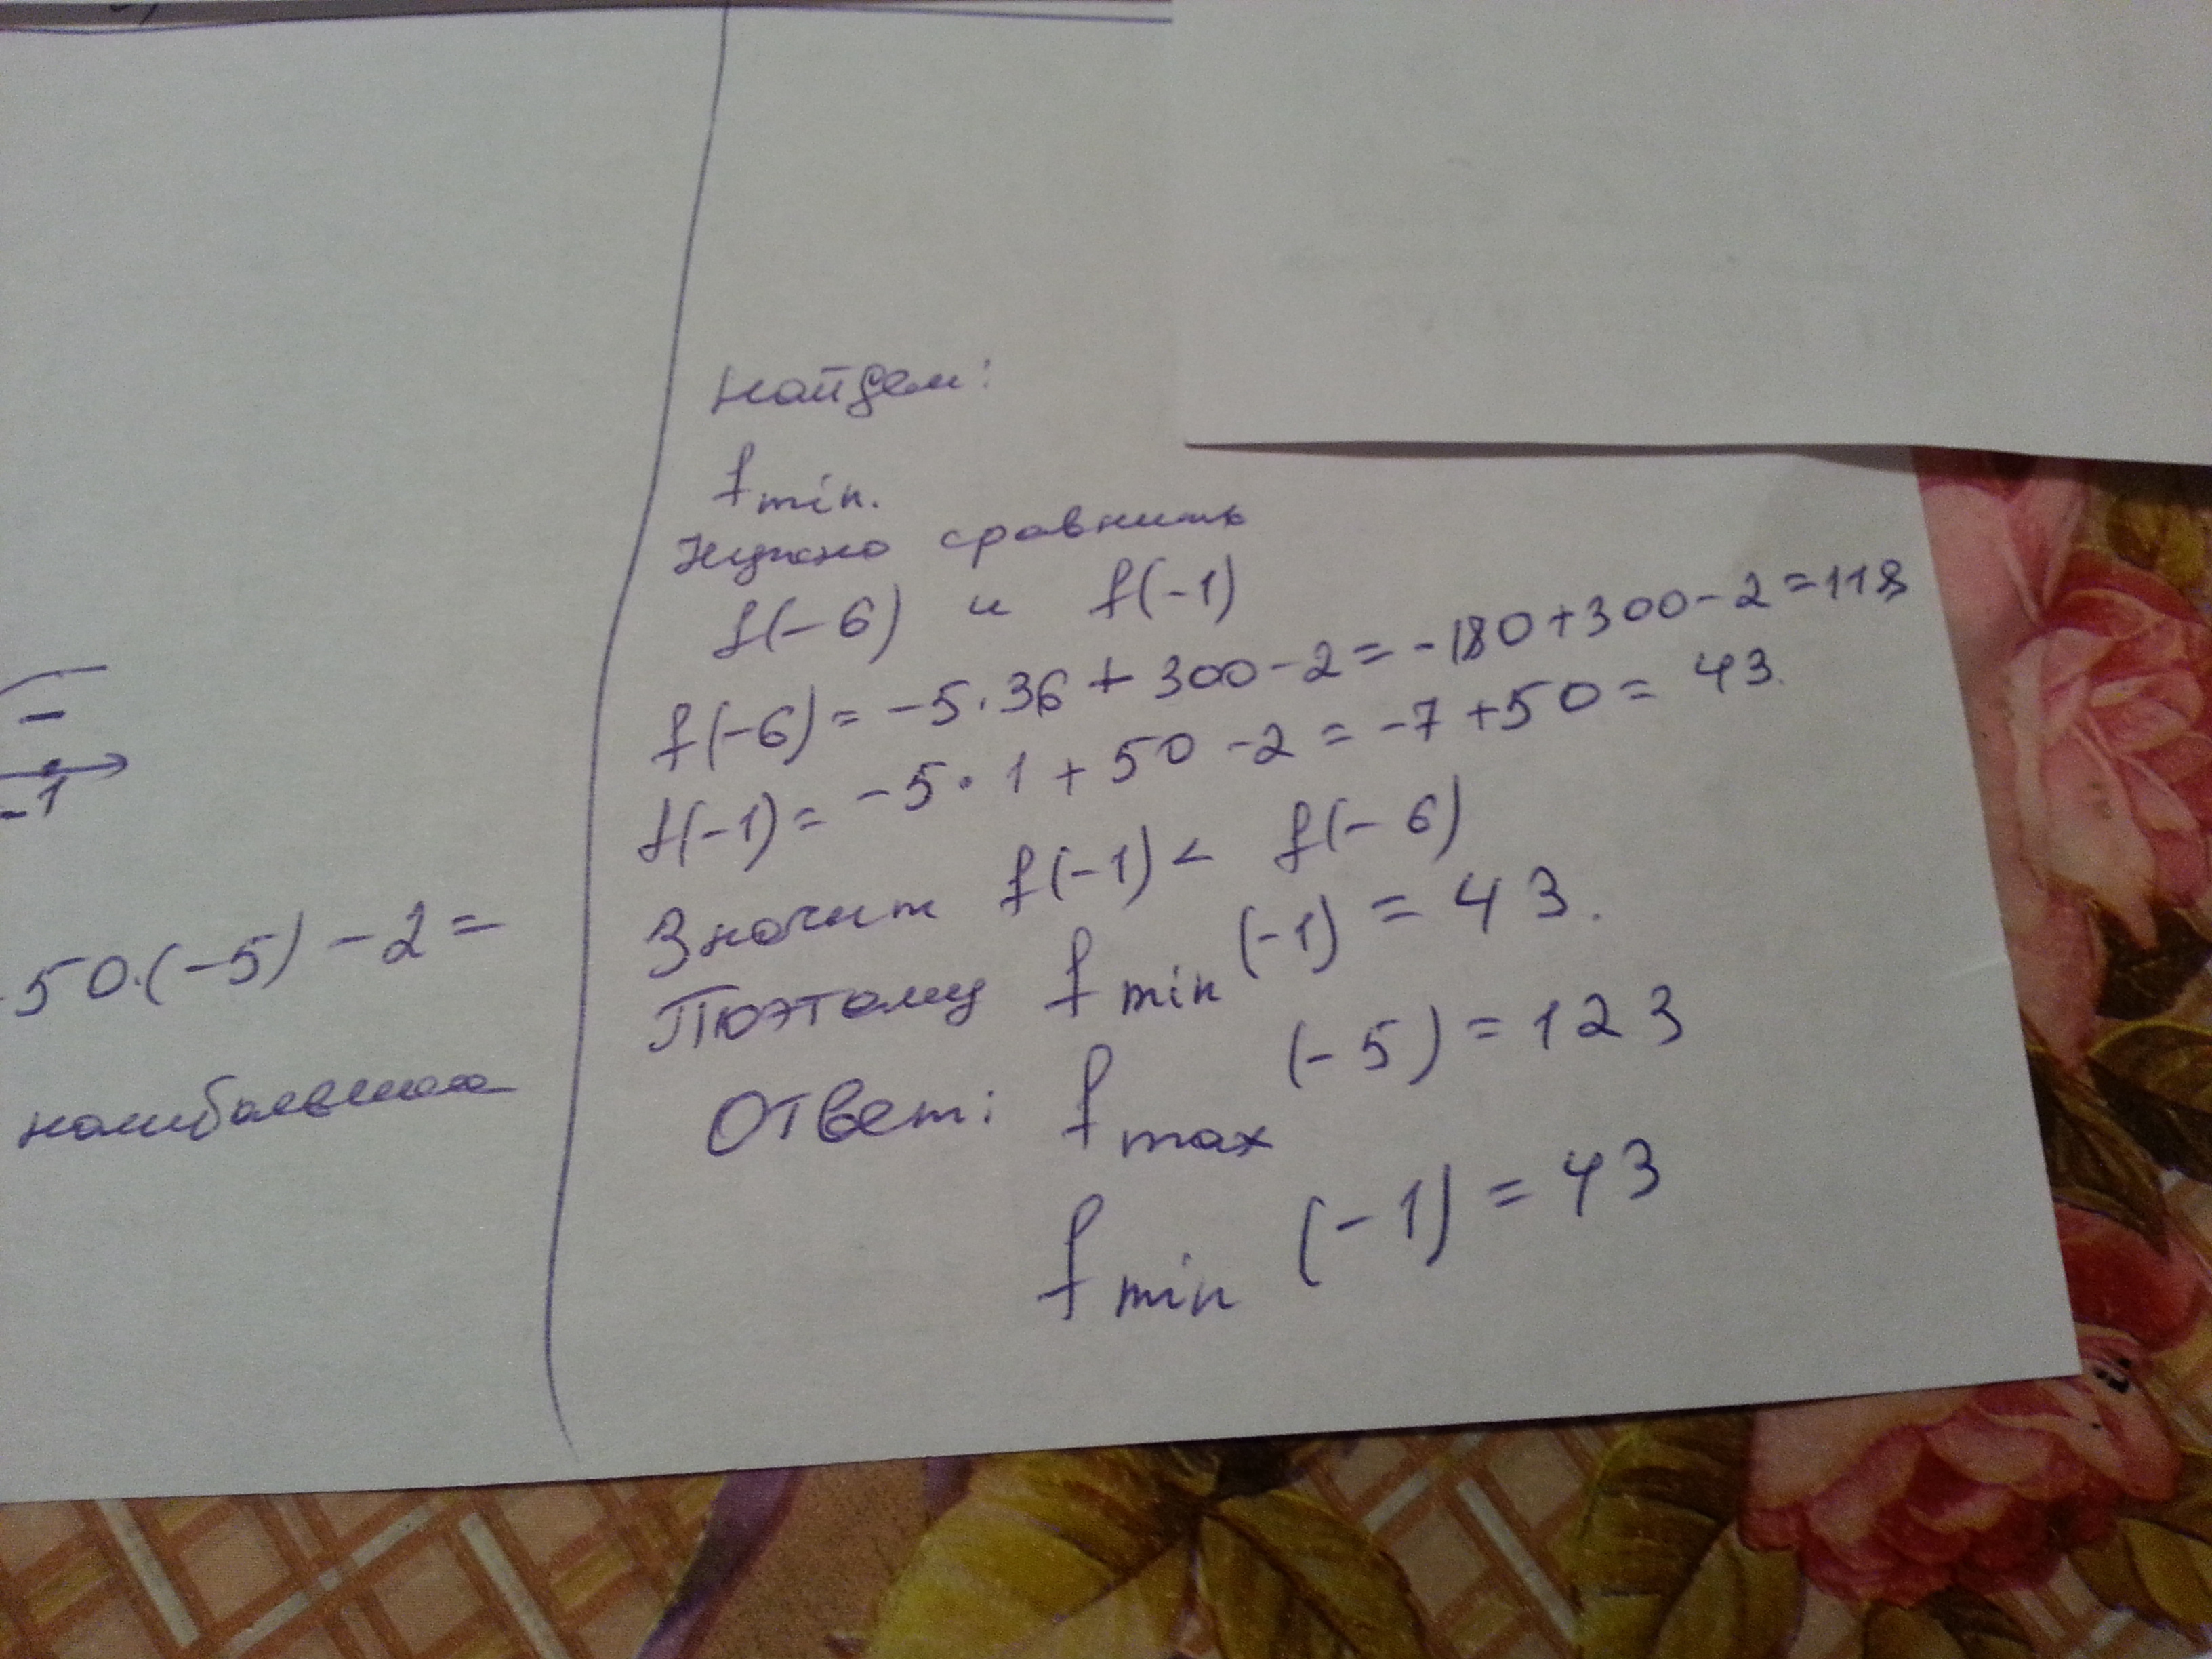 -
-1
50·(-5) -2 =
наибольшая
Найдем:
f min.
Нужно сравнить
f(-6) и f(-1)
f(-6) = -5·36 + 300-2 = -180+300-2=118
f(-1) = -5·1 + 50 -2 = -7 +50 = 43.
Значит f(-1) < f(-6)
Поэтому f min (-1) = 43.
Ответ: f max (-5) = 123
f min (-1) = 43